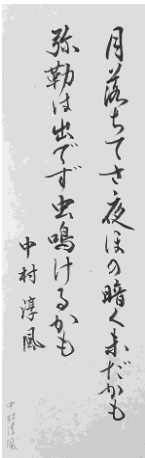 月落ちてさ夜ほの暗く未だかも
弥勒は出でず虫鳴けるかも
中村淳風
中村淳風